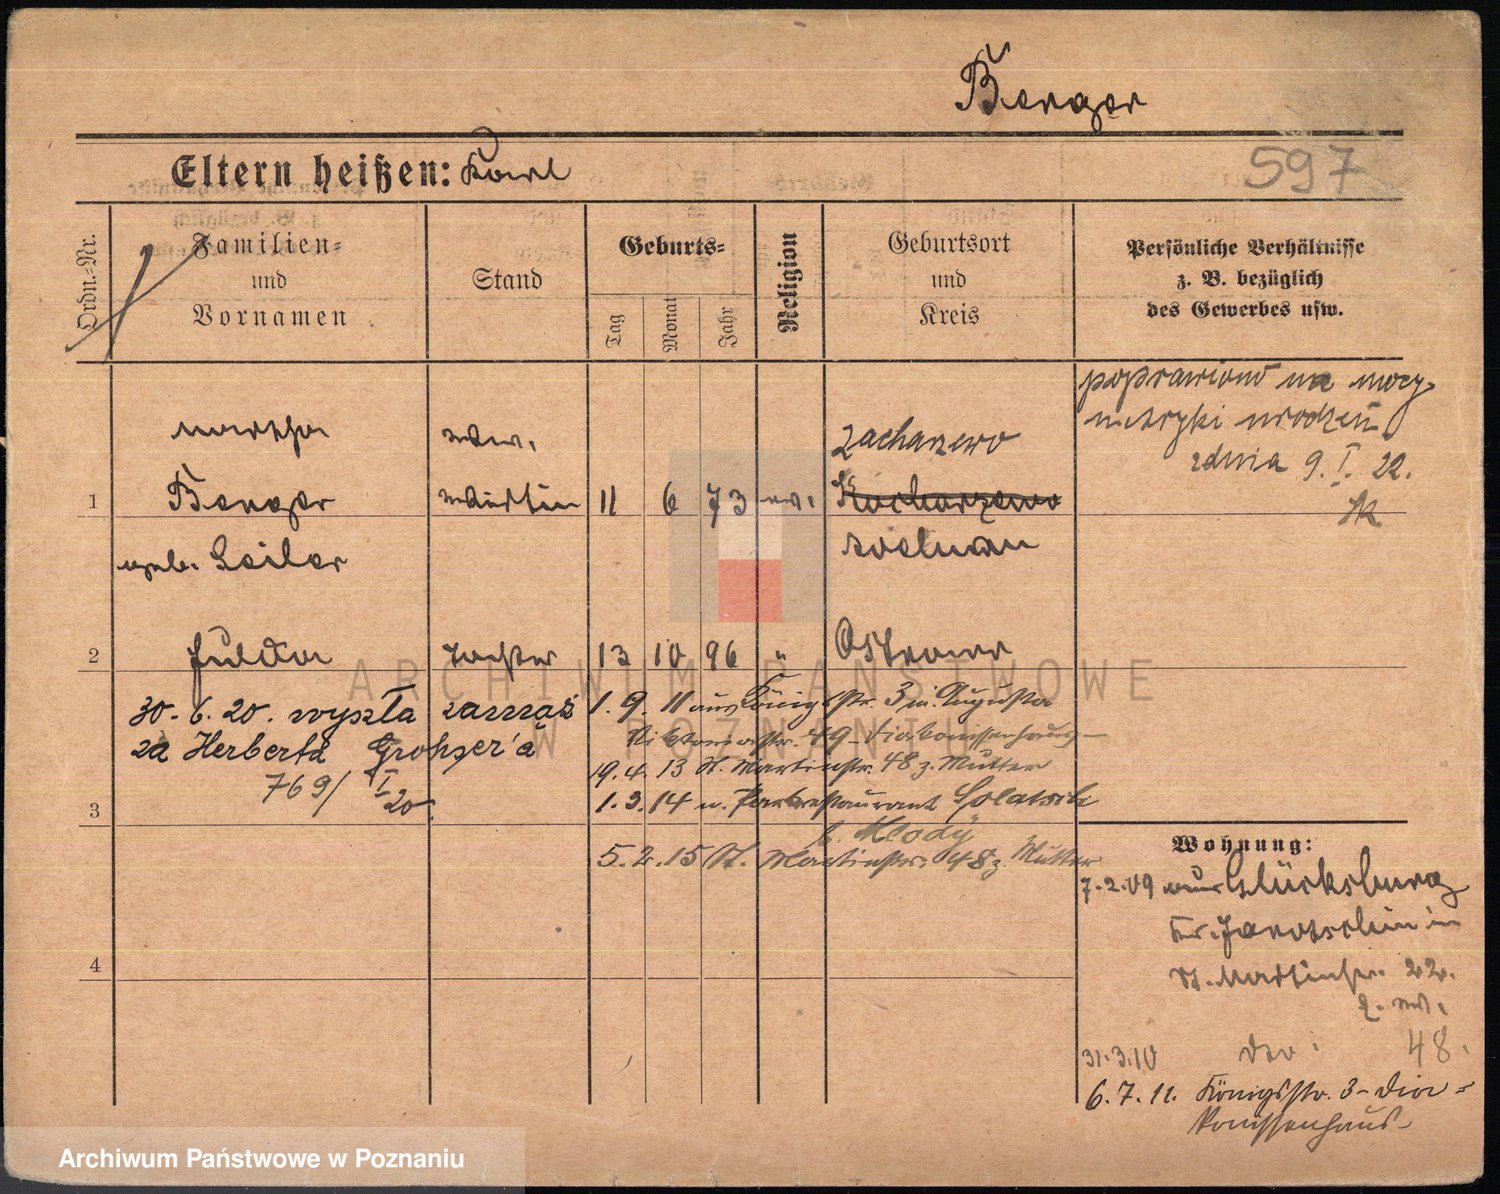 Berger
Eltern heißen: Karl
597
Ordn.=Nr.
Familien=
und
Vornamen
Stand
Geburts=
Tag
Monat
Jahr
Religion
Geburtsort
und
Kreis
Persönliche Verhältnisse
z. B. bezüglich
des Gewerbes usw.
poprawiono na mocy
metryki urodzeń
z dnia 9. I. 22.
Martha
Zacharzewo
1
Berger
11 6 73 ev.
Kocharzewo
geb. Seiler
2
Hulda
Tochter
13 10 96 "
Ostrowo
30. 6. 20. wyszła zamąż
za Herberta Grohser'a
769/ I 20.
1. 9. 11 aus Königsstr. 3 in Augusta
Viktoriastr. 49 Diakonissenhaus
19. 4. 13 St. Martinstr. 48 z. Mutter
1. 3. 14 n. Parkrestaurant Solatsch
b. Mlody
5. 2. 15 St. Martinstr. 48 z. Mutter
3
4
Wohnung:
7. 2. 09 aus Glücksburg
Kr. Jarotschin in
St. Martinstr. 22.
31. 3. 10 48.
6. 7. 11. Königsstr. 3 - Dia=
konissenhaus
ARCHIWUM PAŃSTWOWE
W POZNANIU
Archiwum Państwowe w Poznaniu